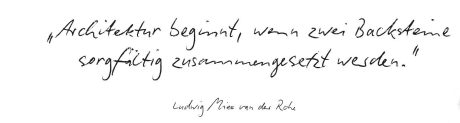 „Architektur beginnt, wenn zwei Backsteine
sorgfältig zusammengesetzt werden."
Ludwig Mies van der Rohe